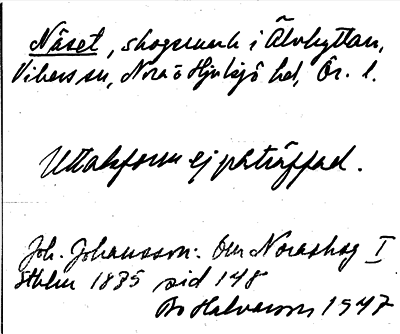 Näset, skogsmark i Älvhyttan,
Vikers sn, Nora o Hjulsjö hd, Ör. l.
Uttalsform ej påträffad.
Joh. Johansson: Om Noraskog I
Sthlm 1875 sid 148
Bo Halvarson 1947